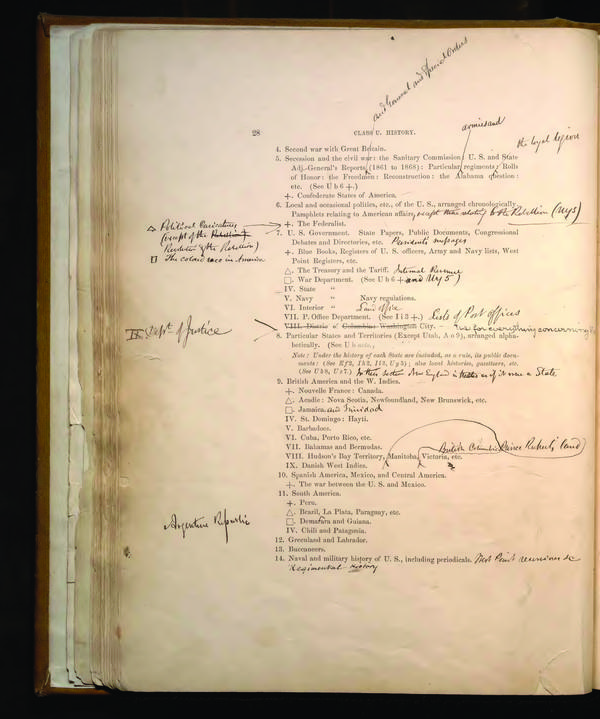 and General and Special Orders
28
CLASS U. HISTORY.
armies and
the loyal legion
4. Second war with Great Britain.
5. Secession and the civil war: the Sanitary Commission: U. S. and State
Adj.-General's Reports (1861 to 1868): Particular regiments: Rolls
of Honor: the Freedmen: Reconstruction: the Alabama question:
etc. (See U b 6 +.)
+. Confederate States of America.
6. Local and occasional politics, etc., of the U. S., arranged chronologically.
Pamphlets relating to American affairs, except those relating to the Rebellion (U y 5)
△ Political Caricatures
+. The Federalist.
(except of the Revolution
& the Rebellion)
□ The colored race in America
7. U. S. Government. State Papers, Public Documents, Congressional
Debates and Directories, etc. Presidents messages
+. Blue Books, Registers of U. S. officers, Army and Navy lists, West
Point Registers, etc.
△. The Treasury and the Tariff. Internal Revenue
□. War Department. (See U b 6 + and U y 5)
IV. State "
V. Navy " Navy regulations.
VI. Interior " Land office
VII. P. Office Department. (See I i 5 +.) Lists of Post offices
IX Dept. of Justice
VIII. District of Columbia: Washington City. for everything concerning
8. Particular States and Territories (Except Utah, A o 9), arranged alpha-
betically. (See U b
Note: Under the history of each State are included, as a rule, its public docu-
ments: (See E f 2, I k 2, I i 3, U g 5); also local histories, gazetteers, etc.
(See U b 8, U s 7.) In this section New England is treated as if it were a State
9. British America and the W. Indies.
+. Nouvelle France: Canada.
△. Acadie: Nova Scotia, Newfoundland, New Brunswick, etc.
□. Jamaica. and Trinidad
IV. St. Domingo: Hayti.
V. Barbadoes.
VI. Cuba, Porto Rico, etc.
VII. Bahamas and Bermudas.
British Columbia (Prince Rupert's land)
VIII. Hudson's Bay Territory, Manitoba, Victoria, etc.
IX. Danish West Indies.
10. Spanish America, Mexico, and Central America.
+. The war between the U. S. and Mexico.
11. South America.
+. Peru.
△. Brazil, La Plata, Paraguay, etc.
Argentine Republic
□. Demarara and Guiana.
IV. Chili and Patagonia.
12. Greenland and Labrador.
13. Buccaneers.
14. Naval and military history of U. S., including periodicals. West Point reunions &c
Regimental history